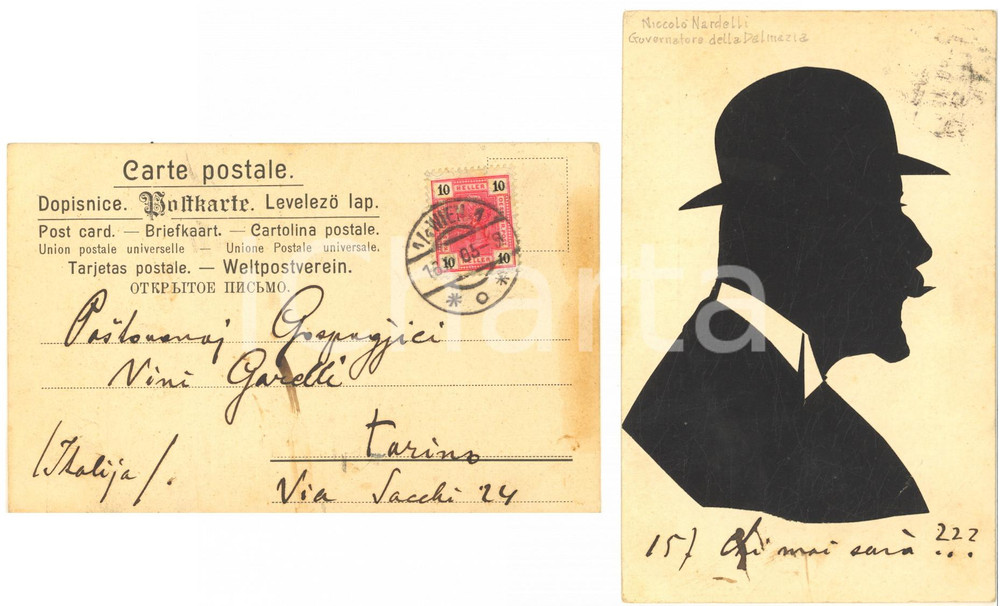 Carte postale.
Dopisnice. Postkarte. Levelezö lap.
Post card. — Briefkaart. — Cartolina postale.
Union postale universelle — Unione Postale universale.
Tarjetas postale. — Weltpostverein.
ОТКРЫТОЕ ПИСЬМО.
10 HELLER 10
10 10
WIEN 1
05
Poštovanoj Gospogjici
Nini Garelli
Torino
(Italija).
Via Sacchi 24
Niccolò Nardelli
Governatore della Dalmazia
157 Chi mai sarà ???
Charta